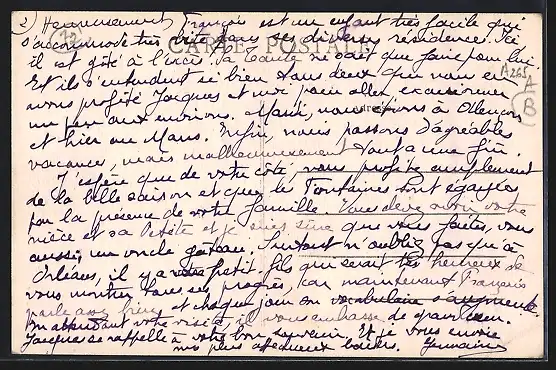 2) Heureusement François est un enfant très facile qui
s'accommode très bien dans ses diverses résidences. Ici
CARTE POSTALE
il est gâté à l'excès. Sa tante ne sait que faire pour lui.
Et ils s'entendent si bien tous deux que nous en
A265
A
B
avons profité Jacques et moi pour aller excursionner
un peu aux environs. Mardi, nous étions à Alençon
et hier au Mans. Enfin, nous passons d'agréables
vacances, mais malheureusement tout a une fin.
J'espère que de votre côté, vous profitez amplement
de la belle saison et que les Fontaines sont égayées
par la présence de votre famille. Vous devez avoir votre
nièce et sa petite et je suis sûre que vous faites, vous
aussi, un oncle gâteau. Surtout n'oubliez pas qu'à
Orléans, il y a petit fils qui serait très heureux de
vous montrer tous ses progrès, car maintenant François
parle assez bien et chaque jour son vocabulaire s'augmente.
En attendant votre visite, il vous embrasse de grand cœur.
Jacques se rappelle à votre bon souvenir. Et je vous envoie
mes plus affectueux baisers. Germaine